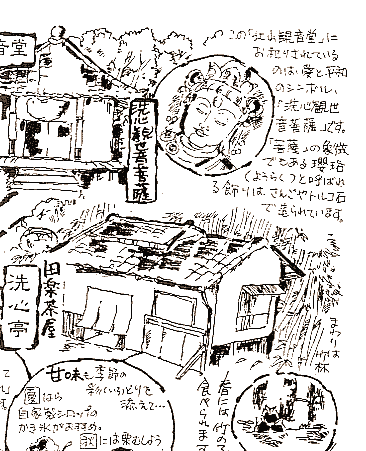 音堂
この「辻山観音堂」に
お祀りされている
のは、愛と平和
のシンボル、
「洗心観世
音菩薩」です。
「菩薩」の象徴
でもある瓔珞
(ようらく)と呼ばれ
る飾りは、さんごやトルコ石
で造られています。
洗心観世音菩薩
洗心亭
田楽茶屋
まわりは
竹林
甘味も季節の
彩(いろどり)を
添えて…
夏はら
自家製シロップの
かき氷がおすすめ。
秋には栗むしよう
春には竹の
食べられます